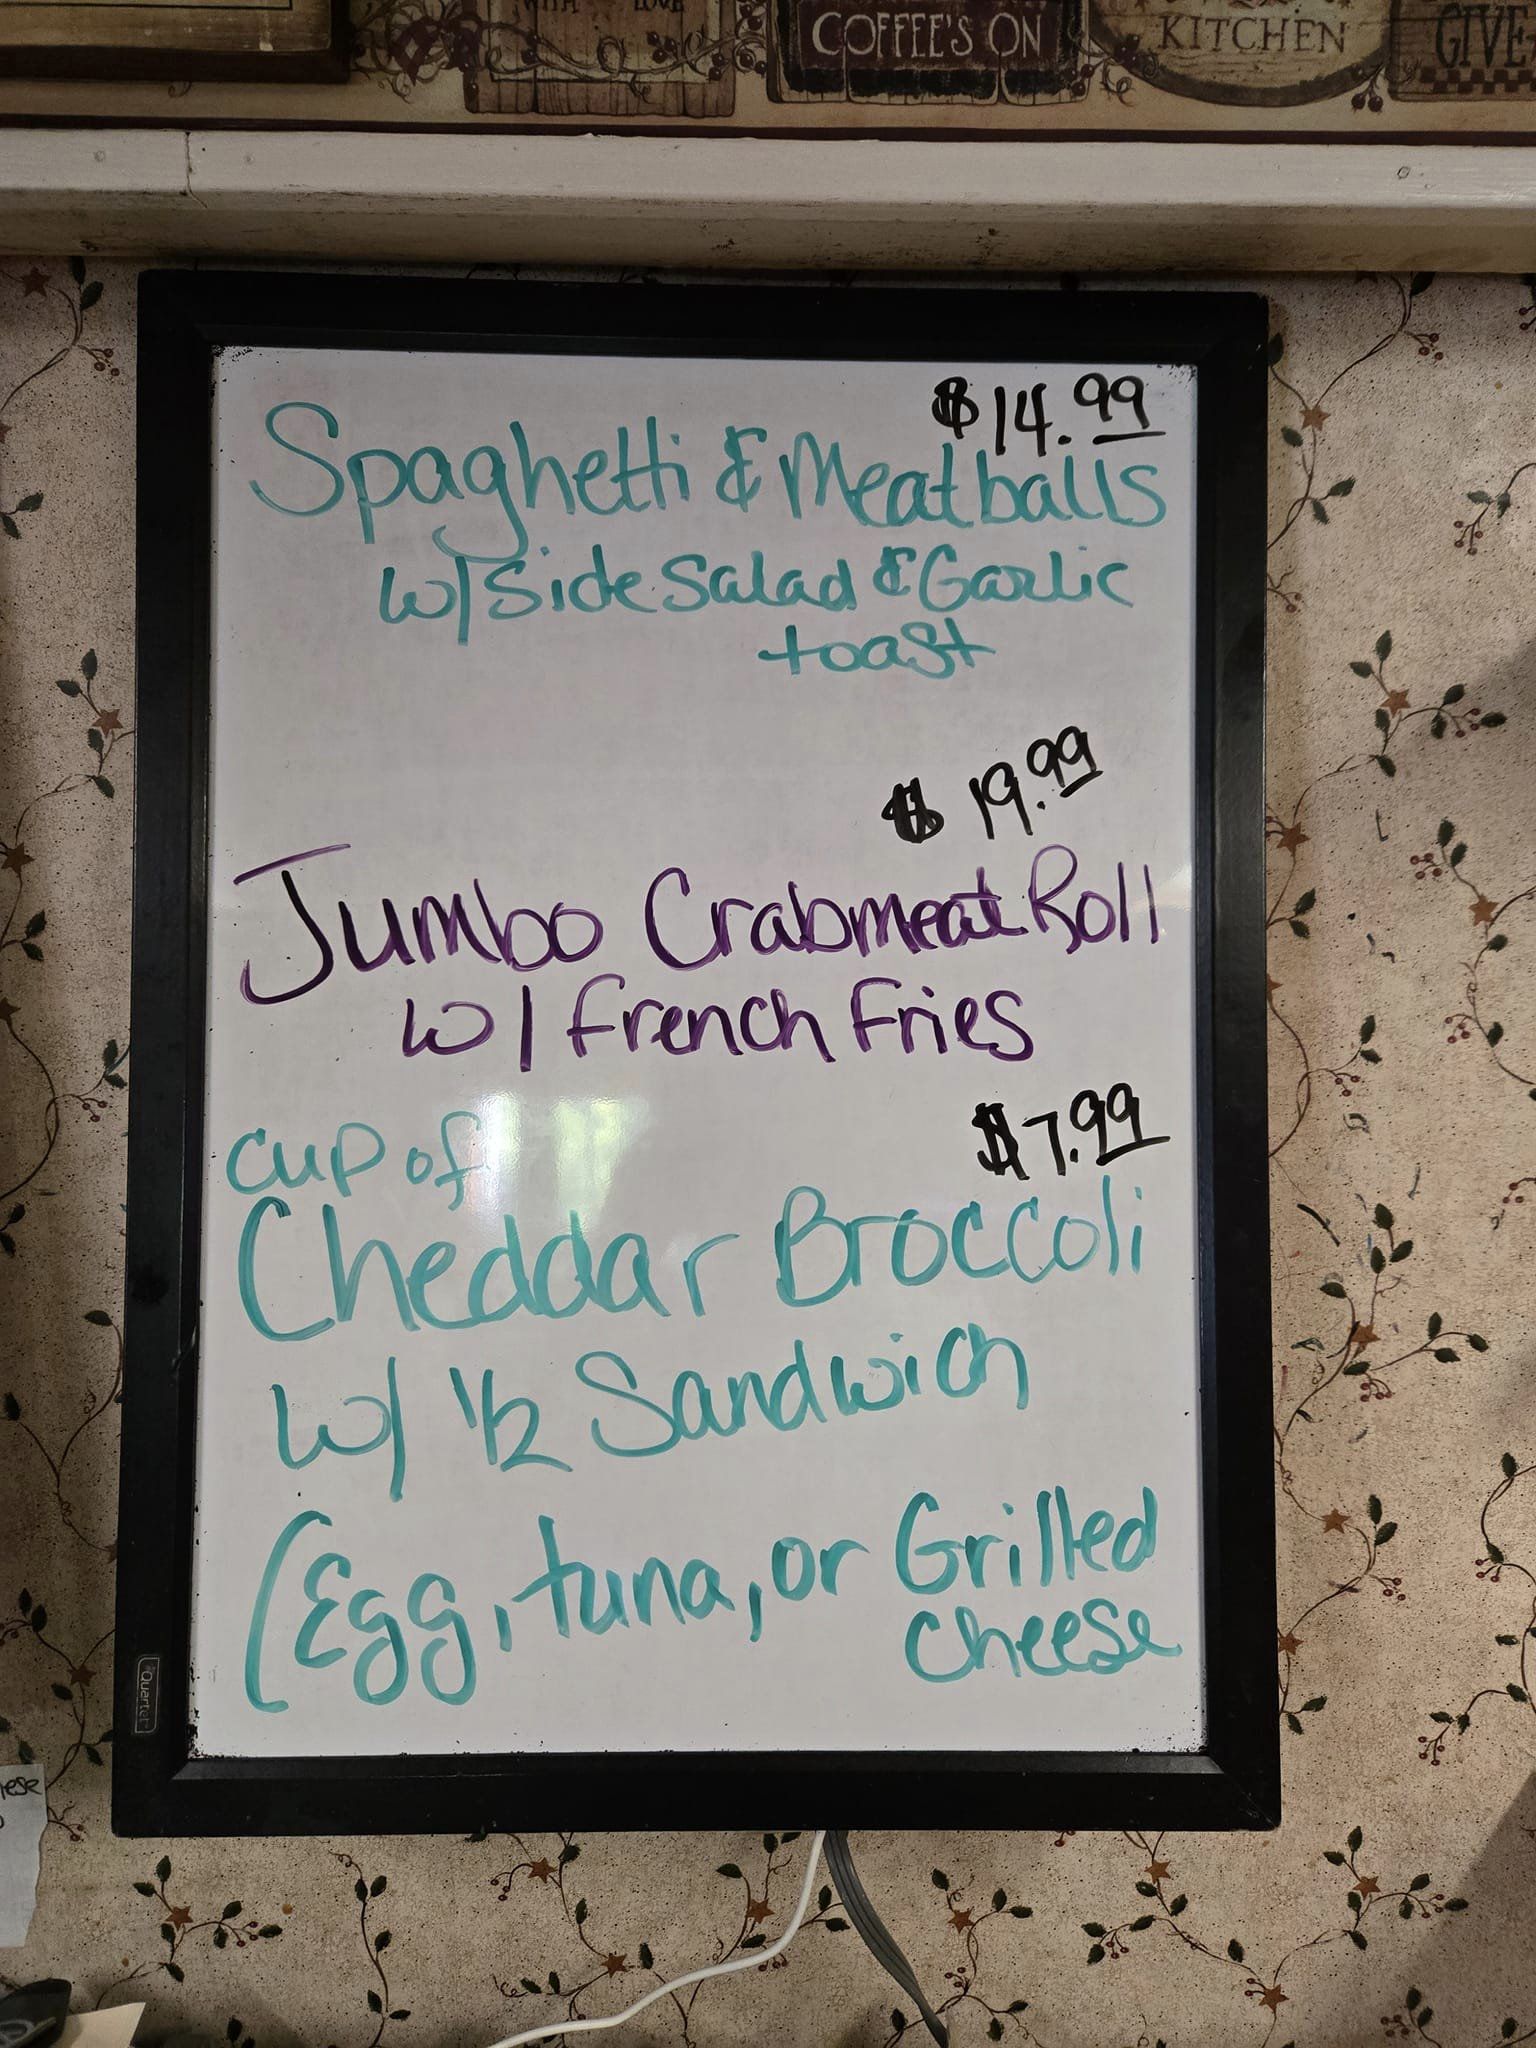 WITH LOVE
COFFEE'S ON
KITCHEN
GIVE
$14.99
Spaghetti & Meatballs
w/ Side Salad & Garlic
toast
$19.99
Jumbo Crabmeat Roll
w/ French Fries
cup of
$7.99
Cheddar Broccoli
w/ 1/2 Sandwich
(Egg, tuna, or Grilled
cheese
Quartet